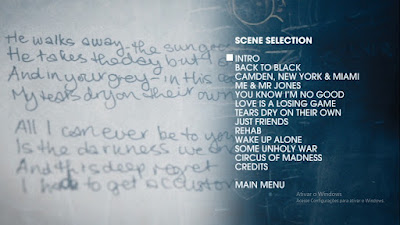 He walks away, the sun goes
He takes the day but I
And in your grey - in this
My tears dry on their own
All I can ever be to you
Is the darkness we
And this deep regret
I had to get accustom
SCENE SELECTION
INTRO
BACK TO BLACK
CAMDEN, NEW YORK & MIAMI
ME & MR JONES
YOU KNOW I'M NO GOOD
LOVE IS A LOSING GAME
TEARS DRY ON THEIR OWN
JUST FRIENDS
REHAB
WAKE UP ALONE
SOME UNHOLY WAR
CIRCUS OF MADNESS
CREDITS
MAIN MENU
Ativar o Windows
Acesse Configurações para ativar o Windows.